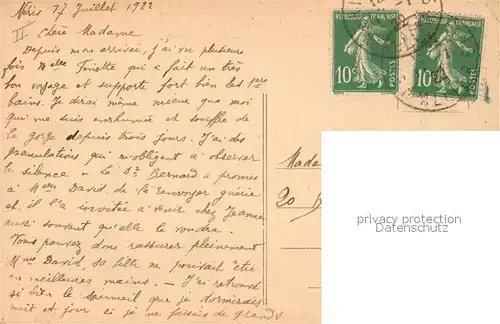 Néris 17 Juillet 1922
II Chère Madame
Depuis mon arrivée, j'ai vu plusieurs
fois Melle Finette qui a fait un très
bon voyage et supporte fort bien les 1ers
bains. Je dirai même mieux que moi
qui me suis enrhumée et souffre de
la gorge depuis trois jours. J'ai des
granulations qui m'obligent à observer
le silence - le Dr Bernard a promis
à Melle David de la renvoyer guérie
et il l'a invitée à venir chez Jeanne
aussi souvent qu'elle le voudra.
Vous pouvez donc rassurer pleinement
Mme David, sa fille ne pouvait être
en meilleures mains. - J'ai retrouvé
si bien le sommeil que je dormirais
nuit et jour si je ne faisais de grands
REPUBLIQUE FRANÇAISE
10c
POSTES
REPUBLIQUE FRANÇAISE
10c
POSTES
Mada
20
privacy protection
Datenschutz